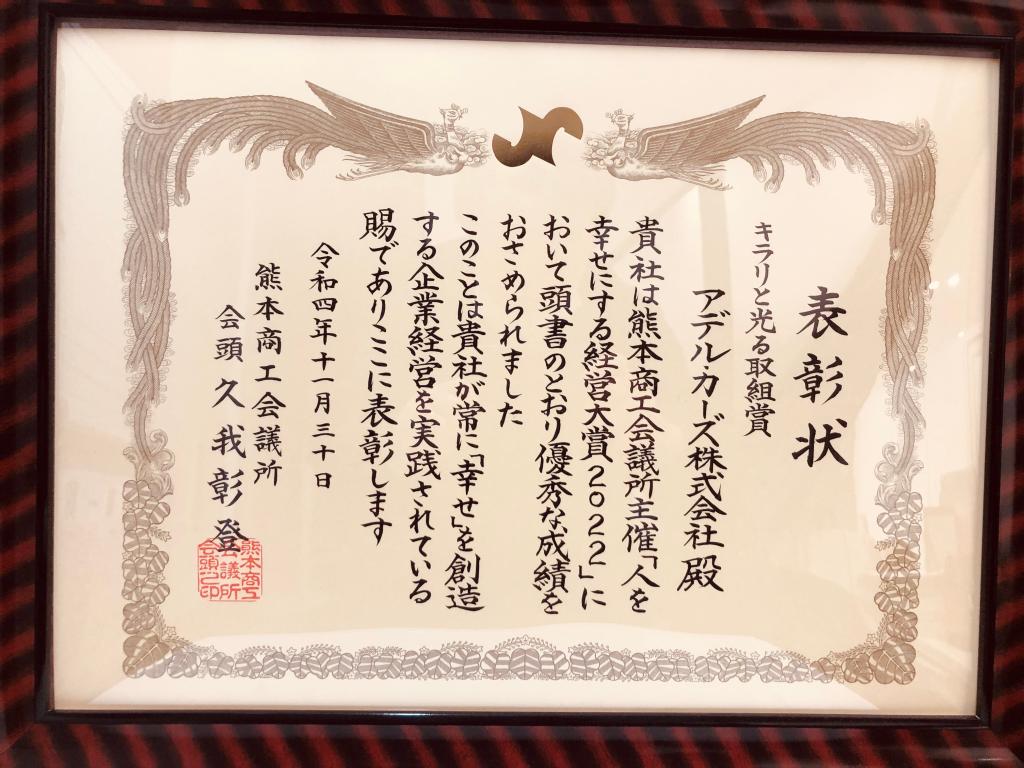 表彰状
キラリと光る取組賞
アデルカーズ株式会社殿
貴社は熊本商工会議所主催「人を
幸せにする経営大賞2022」に
おいて頭書のとおり優秀な成績を
おさめられました
このことは貴社が常に「幸せ」を創造
する企業経営を実践されている
賜でありここに表彰します
令和四年十一月三十日
熊本商工会議所
会頭 久我彰登
熊本商工
会議所
会頭之印